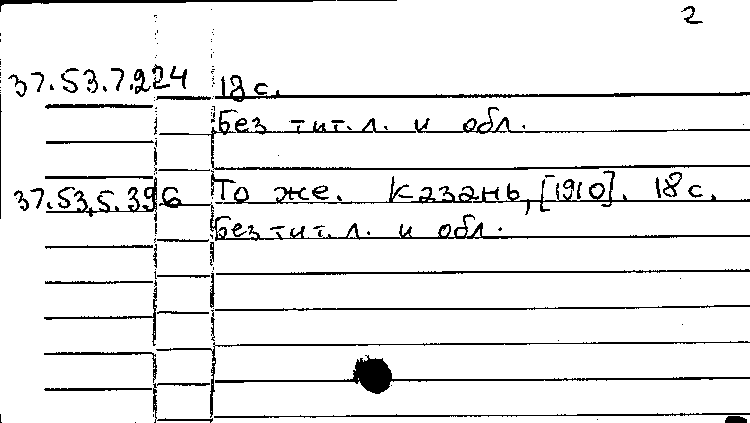 2
37.53.7.224 18 с.
Без тит. л. и обл.
37.53.5.396 То же. Казань, [1910]. 18 с.
Без тит. л. и обл.